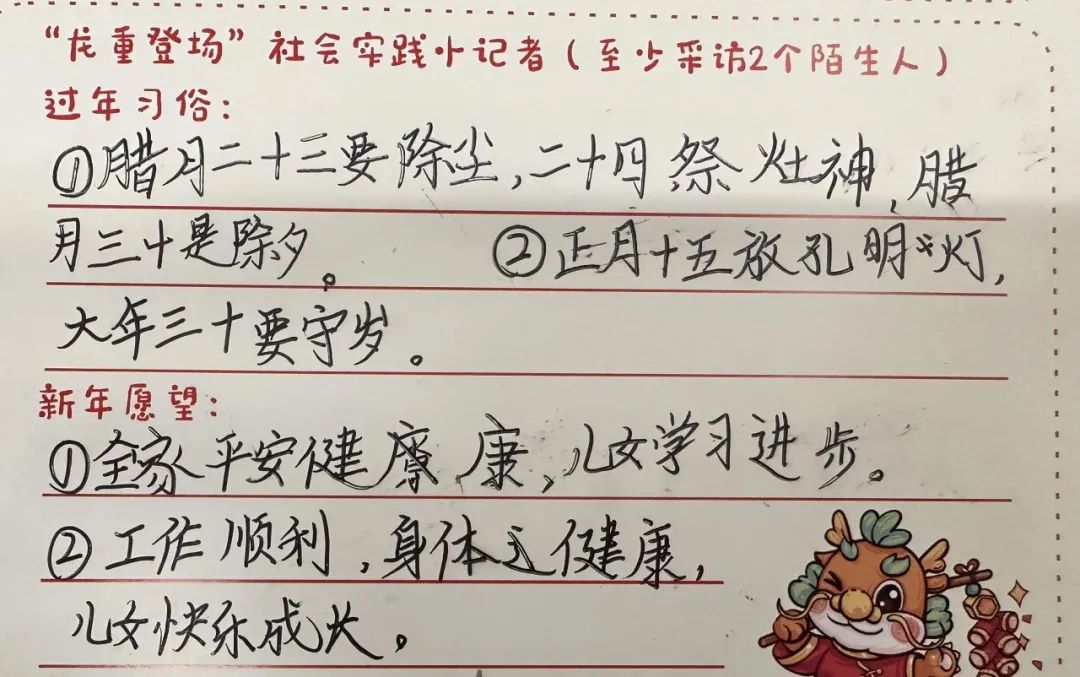 “龙重登场”社会实践小记者（至少采访2个陌生人）
过年习俗：
①腊月二十三要除尘,二十四祭灶神,腊
月三十是除夕。 ②正月十五放孔明灯,
大年三十要守岁。
新年愿望：
①全家平安健康,儿女学习进步。
②工作顺利,身体健康,
儿女快乐成长。